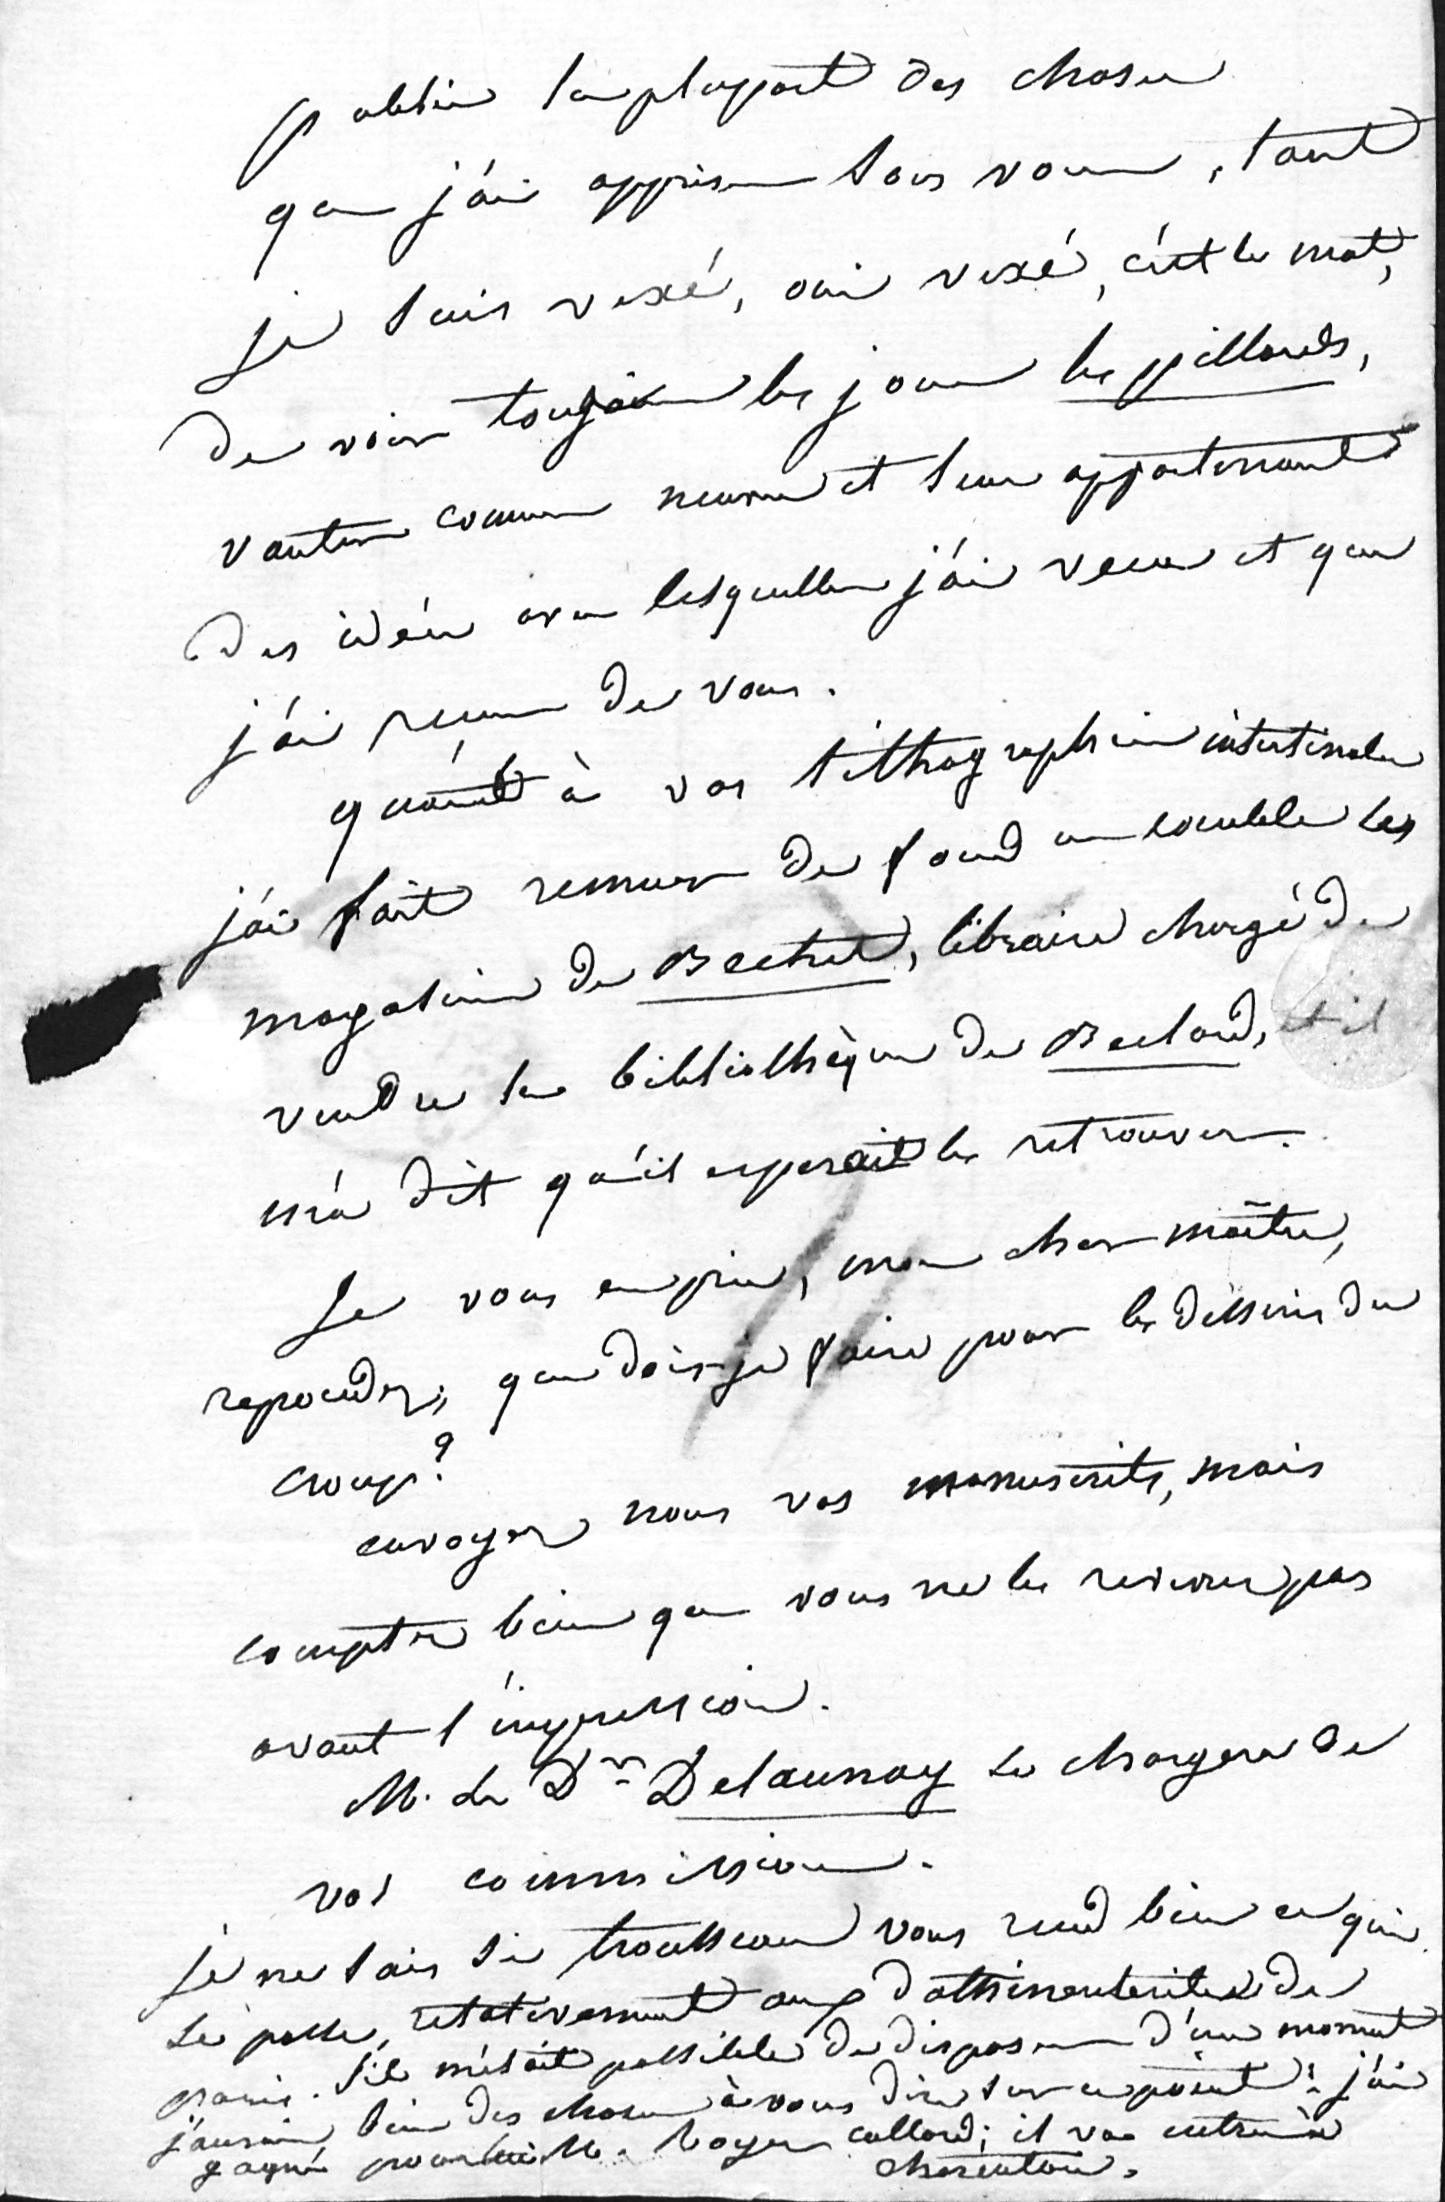 publier la pluspart des choses
que j'ai apprises sous vous, tant
je suis vexé, oui vexé, c'est le mot,
de voir toujours les jours les pillards,
vanter comme neuves et leur appartenant
des idées avec lesquelles j'ai vécu et que
j'ai reçues de vous.
quant à vos lithographies intestinales
j'ai fait remuer de fond en comble les
magasins de Bechet, libraire chargé de
vendre la bibliothèque de Beclard, et il
m'a dit qu'il esperait les retrouver.
Je vous en prie, mon cher maître,
repondez; que dois-je faire pour les dessins du
croup?
envoyez nous vos manuscrits, mais
comptez bien que vous ne les reverrez pas
avant l'impression.
M. le Dr Delaunay se chargera de
vos commissions.
je ne sais si trousseau vous rend bien ce qui
se passe, relativement aux dothinenterites de
paris. S'il m'était possible de disposer d'un moment
j'aurais bien des choses à vous dire sur ce point: j'ai
gagné pour lui M. Royer collard; il va entrer à
charenton.